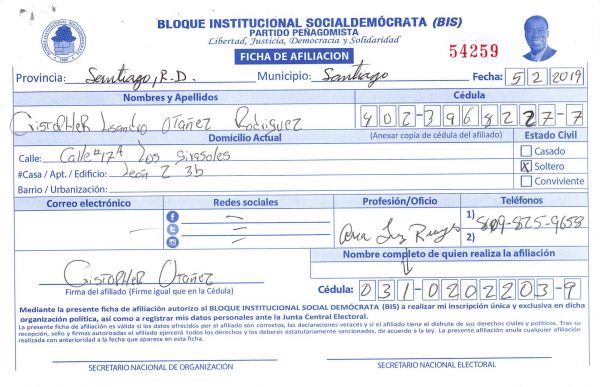 BLOQUE INSTITUCIONAL SOCIALDEMÓCRATA (BIS)
PARTIDO PEÑAGOMISTA
Libertad, Justicia, Democracia y Solidaridad
FICHA DE AFILIACION
54259
Provincia: Santiago, R.D. Municipio: Santiago Fecha: 5 2 2019
Nombres y Apellidos Cédula
CRISTOPHER Lisandro Otañez Rodriguez 402-3968227-7
Domicilio Actual (Anexar copia de cédula del afiliado) Estado Civil
Calle: Calle #17A Los Girasoles Casado
#Casa / Apt. / Edificio: León 2 3b X Soltero
Barrio / Urbanización: Conviviente
Correo electrónico Redes sociales Profesión/Oficio Teléfonos
1) 809-825-9658
Ana Luz
2)
Nombre completo de quien realiza la afiliación
CRISTOPHER Otañez
Firma del afiliado (Firme igual que en la Cédula) Cédula: 031-0202203-9
Mediante la presente ficha de afiliación autorizo al BLOQUE INSTITUCIONAL SOCIAL DEMÓCRATA (BIS) a realizar mi inscripción única y exclusiva en dicha
organización política, así como a registrar mis datos personales ante la Junta Central Electoral.
La presente ficha de afiliación es válida si los datos ofrecidos por el afiliado son correctos, las declaraciones veraces y si el afiliado tiene el disfrute de sus derechos civiles y políticos. Tras su
recepción, sello y firmas autorizadas el afiliado ejercerá todos los derechos y los deberes estatutariamente sancionados, de acuerdo a la ley. La presente afiliación anula cualquier afiliación
realizada con anterioridad a la fecha que aparece en esta ficha.
SECRETARIO NACIONAL DE ORGANIZACIÓN SECRETARIO NACIONAL ELECTORAL